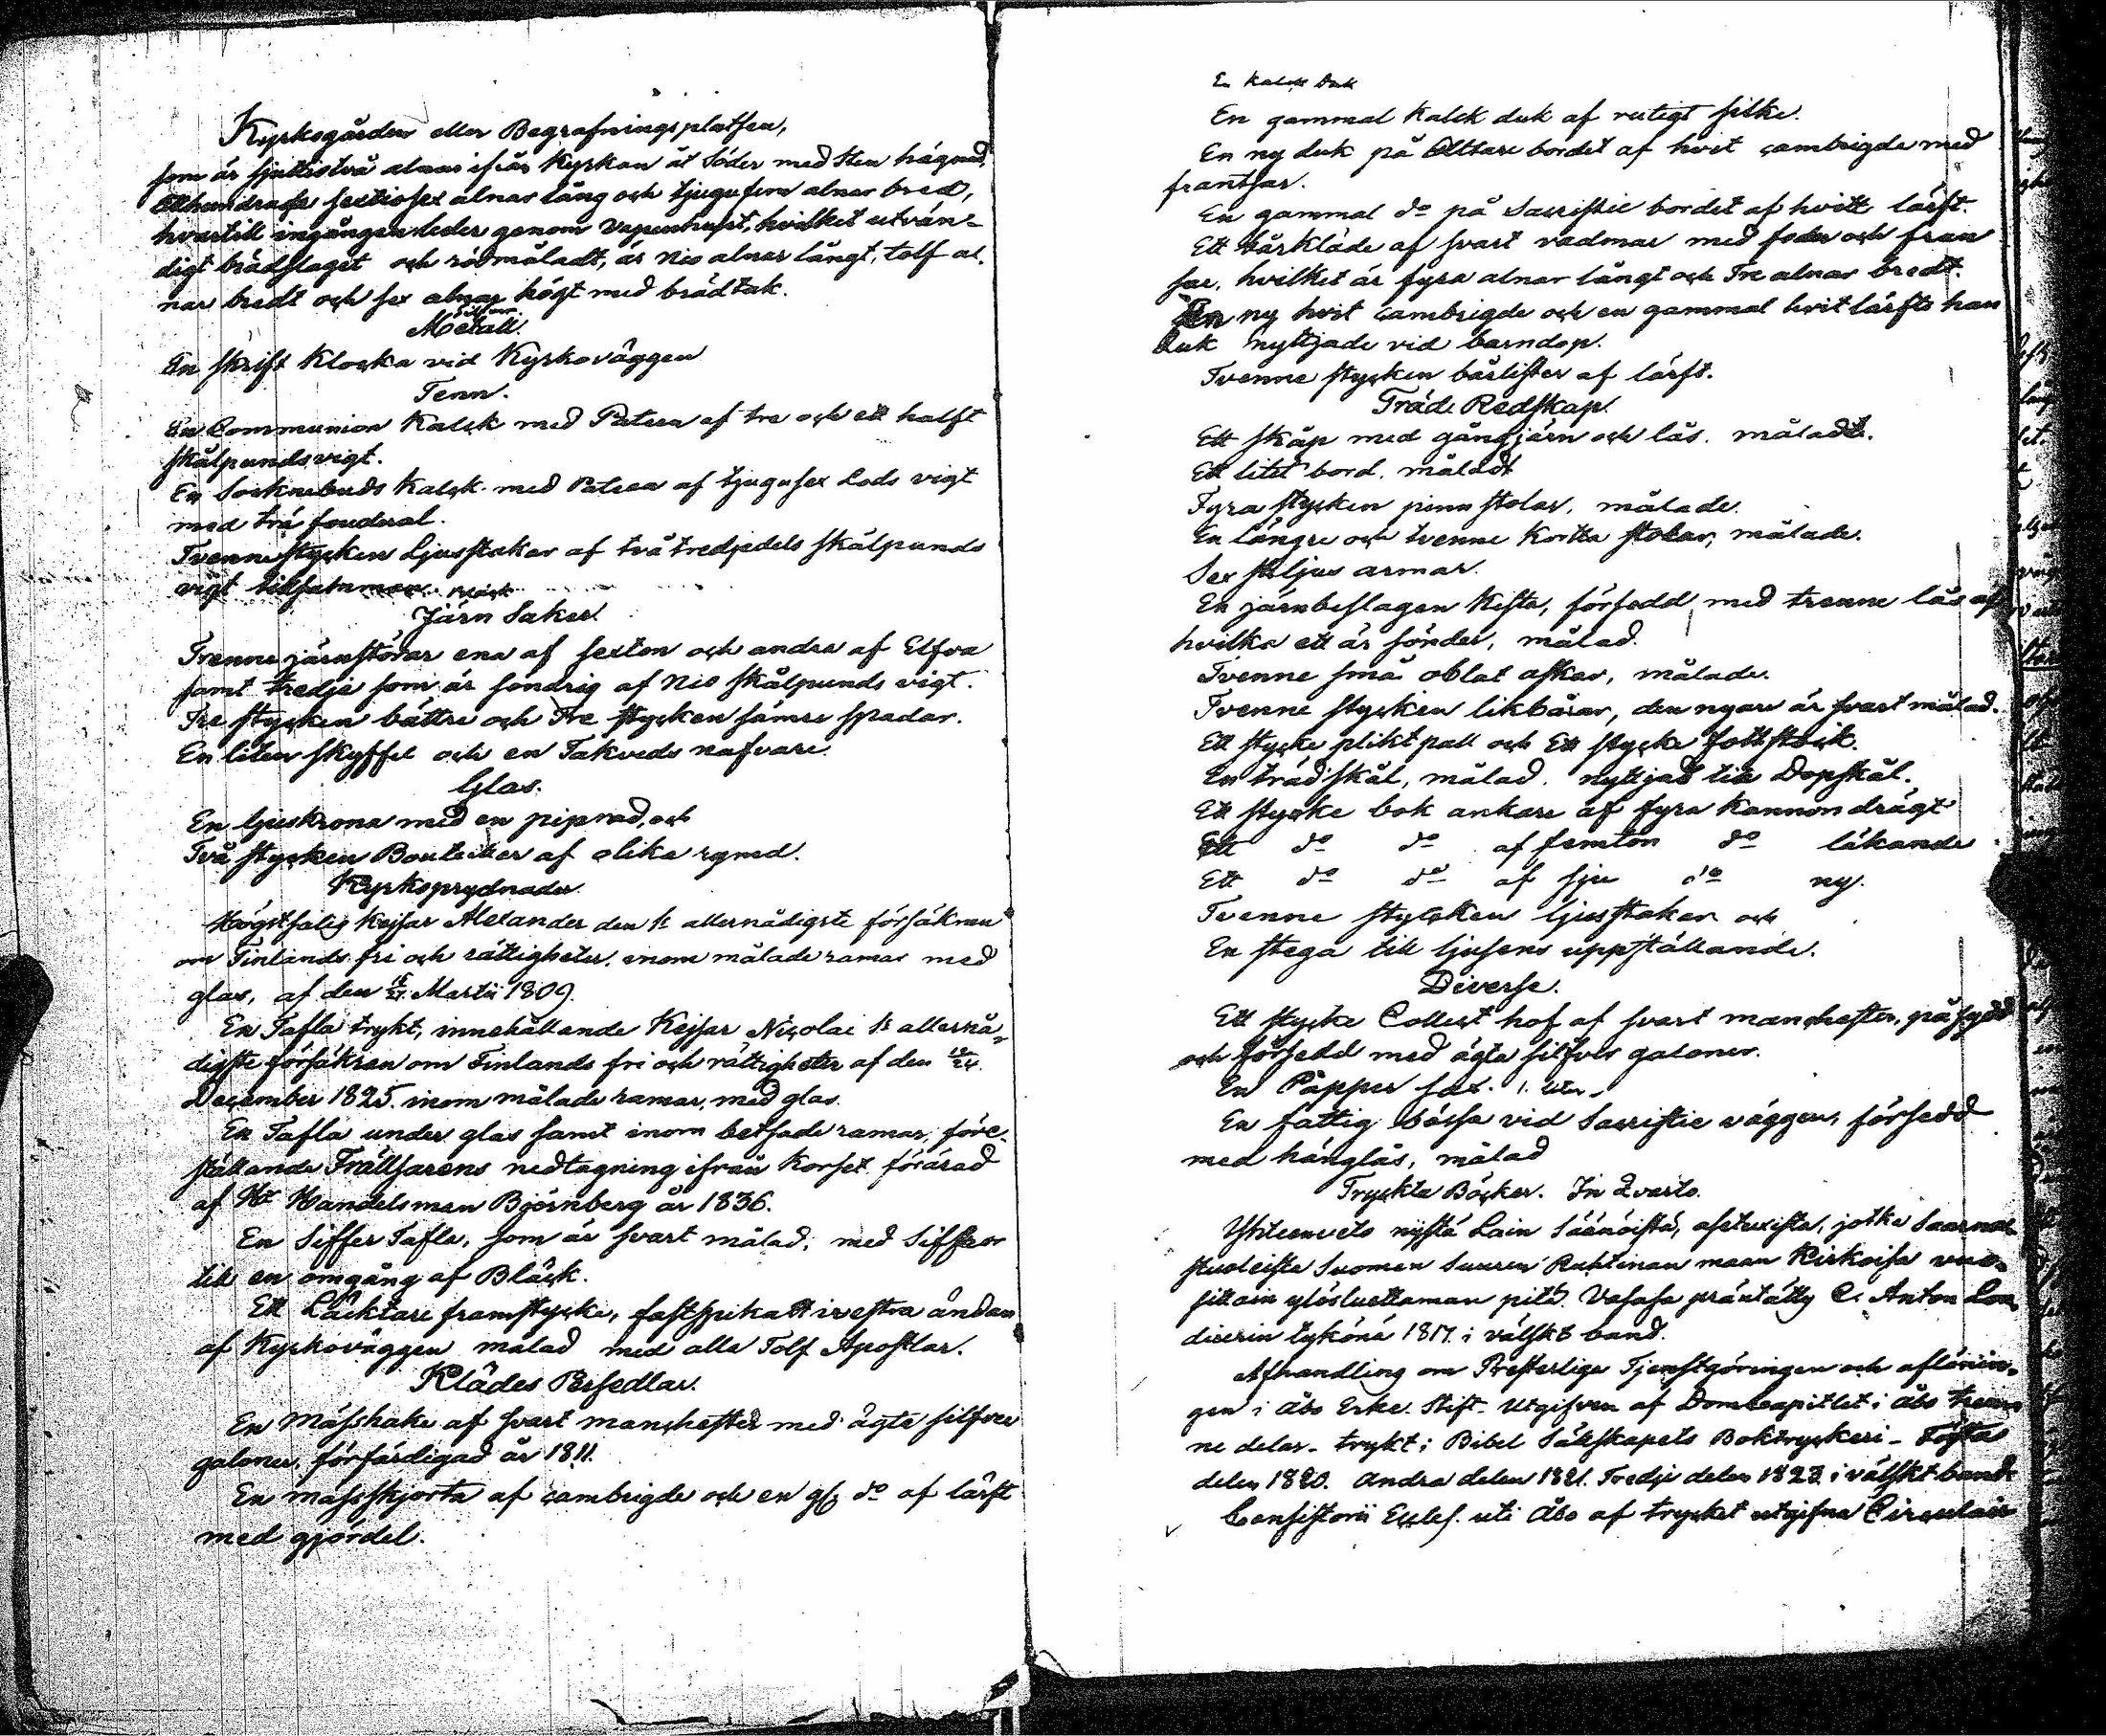 Kyrkogården eller Begrafningsplatsen,
som är sjuttiotvå alnar ifrån Kyrkan åt Söder med Sten hägnad,
Etthundrade sextiosex alnar lång och tjugufem alnar bred,
hvartill ingången leder genom Vapenhuset, hvilket utvän-
digt brädslaget och rödmåladt, är nio alnar långt, tolf al-
nar bredt och sex alnar högt med brädtak.
Metall.
En skrift Klocka vid Kyrkoväggen
Tenn.
En Communion Kalck med Patera af tre och ett halft
skålpunds vigt.
En Socknebuds Kalck med Patera af tjugusex Lods vigt
med trä fouderal.
Tvenne stycken Ljusstakar af två tredjedels skålpunds
vigt tillsamman.
Järn Saker.
Trenne järnstörar ena af sexton och andra af Elfva
samt tredje som är söndrig af Nio skålpunds vigt.
Tre stycken bättre och Tre stycken sämre spadar.
En liten skyffel och en Takveds nafvare.
Glas.
En ljuskrona med en piprad, och
Två stycken Bouteiller af olika rymd.
Kyrkoprydnader.
Högstsalig Kejsar Alexander den 1:s allernådigste försäkran
om Finlands fri och rättigheter, inom målade ramar med
glas, af den 15/27 Martii 1809.
En Tafla trykt, innehållande Kejsar Nicolai 1:s allernå-
digste försäkran om Finlands fri och rättigheter af den 12/24
December 1825. inom målade ramar, med glas.
En Tafla under glas samt inom betsade ramar, före-
ställande Frälsarens nedtagning ifrån Korset förärad
af Hr Handelsman Björnberg år 1836.
En Siffer Tafla, som är svart målad, med Siffror
till en omgång af Bläck.
Ett Läcktare framstycke, fastspikatt i vestra ändan
af Kyrkoväggen målad med alla Tolf Apostlar.
Klädes Persedlar.
En Mässhake af svart manchester med ägta silfver
galoner, förfärdigad år 1811.
En mässskjorta af cambrigde och en gl. do af lärft
med gjördel.
En Kalck Duk
En gammal Kalck duk af rutigt silke.
En ny duk på Altare bordet af hvit cambrigde med
frantsar.
En gammal do på Sacristie bordet af hvitt lärft.
Ett bårkläde af svart vadmar med foder och fran
sar, hvilket är fyra alnar långt och Tre alnar bredt.
En ny hvit cambrigde och en gammal hvit lärfts han
duk nyttjade vid barndop.
Tvenne stycken bårlister af lärft.
Träd Redskap.
Ett skåp med gångjärn och lås. måladt.
Ett litet bord. måladt
Fyra stycken pinnstolar, målade.
En längre och tvenne Korta stolar, målade.
Sex st ljus armar.
En järnbeslagen Kista, försedd med trenne lås af
hvilka ett är sönder, målad.
Tvenne små oblat askar, målade.
Tvenne stycken likbårar, den nyare är svart målad.
Ett stycke pliktpall och Ett stycke fottstäck.
En trädskål, målad. nyttjad till Dopskål.
Ett stycke bok ankare af fyra Kannon drägt
Ett do do af femton do läkande
Ett do do af sju do ny.
Tvenne stycken ljusstakar och
En stega till ljusens uppställande.
Diverse.
Ett stycke Collect hof af svart manchester, påsydd
och försedd med ägta silfvers galoner.
En Papper sax.
En fattig bössa vid Sacristie väggen, försedd
med hänglås, målad
Tryckta Böcker. In Qvarto.
Yhteenveto niistä Lain Säänöistä, asetuxista, jotka Saarna
stuoleista Suomen Suuren Ruhtinan maan Kirkoisa vuo-
sittain ylösluettaman pitä. Vasasa präntätty C. Anton Lon
dicerin tykönä 1817. i välskt band.
Afhandling om Presterliga Tjenstgöringen och aflönin-
gen i Åbo Erke. Stift. Utgifven af Domcapitlet i Åbo tren
ne delar. trykt i Bibel Sälskapets Boktryckeri. Första
delen 1820. Andra delen 1821. Tredje delen 1823 i välskt band.
Consistorii Eccles. uti Åbo af trycket utgifna Circulair